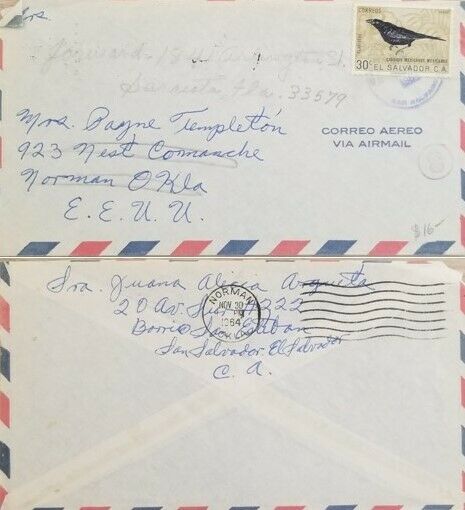 Mrs.
Forward - Washington St.
Sarasota, Fla. 33579
CORREOS
30¢ EL SALVADOR, C.A.
Mrs. Bayne Templetón
923 West Comanche
Norman OKla
E.E.U.U.
CORREO AEREO
VIA AIRMAIL
$16-
Sra. Juana Alicia Argueta
20 Av. Sur # 222
Barrio San Esteban
San Salvador El Salvador
C. A.
NORMAN
NOV 30
PM
1964
OKLA